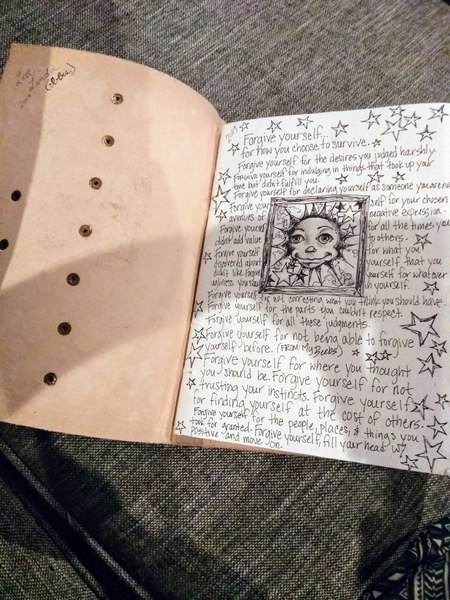 2019
Forgive yourself...
for how you choose to survive.
Forgive yourself for the desires you judged harshly.
Forgive yourself for indulging in things that took up your
time but didn't fulfill you.
Forgive yourself for declaring yourself as someone you are not
Forgive you self for your chosen
avenues of negative expression.
Forgive yourself for all the times you
didn't add value to others.
Forgive yourself for what you
discovered about yourself that you
didn't like. Forgive yourself for whatever
in yourself.
Forgive yourself for not correcting what you think you should have.
Forgive yourself for the parts you couldn't respect.
Forgive yourself for all these judgments
Forgive yourself for not being able to forgive
yourself before. (FROM My
Forgive yourself for where you thought
you should be. Forgive yourself for not
trusting your instincts. Forgive yourself
for finding yourself at the cost of others.
Forgive yourself for the people, places, & things you
took for granted. Forgive yourself, fill your head w/
positive and move on.